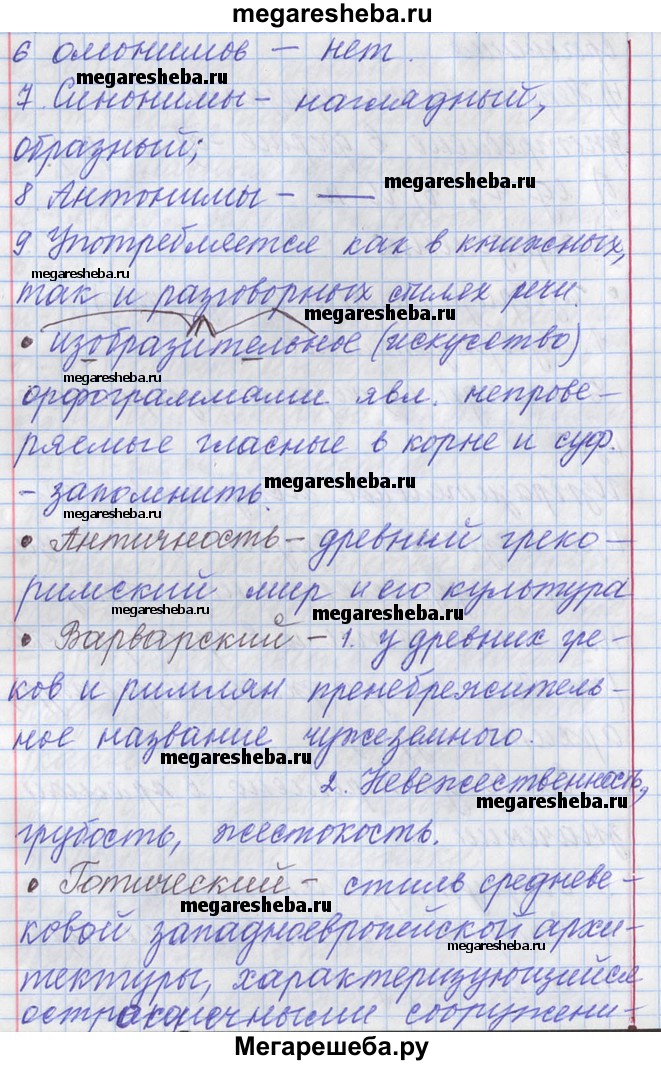 megaresheba.ru
6 омонимов – нет.
megaresheba.ru
7 Синонимы – наглядный,
образный;
8 Антонимы – —
megaresheba.ru
9 Употребляется как в книжных,
megaresheba.ru
так и разговорных стилех речи.
megaresheba.ru
• изобразительное (искусство)
megaresheba.ru
орфограммами явл. непрове-
ряемые гласные в корне и суф.
megaresheba.ru
- запомнить.
megaresheba.ru
• Античность – древний греко-
римский мир и его культура
megaresheba.ru
megaresheba.ru
• Варварский – 1. у древних гре-
ков и римлян пренебрежитель-
ное название чужеземного.
megaresheba.ru
2. Невежественность,
megaresheba.ru
грубость, жестокость.
• Готический – стиль средневе-
megaresheba.ru
ковой западноевропейской архи-
megaresheba.ru
тектуры, характеризующийся
остроконечными сооружени-
megaresheba.ru
megaresheba.ru
Мегарешеба.ру